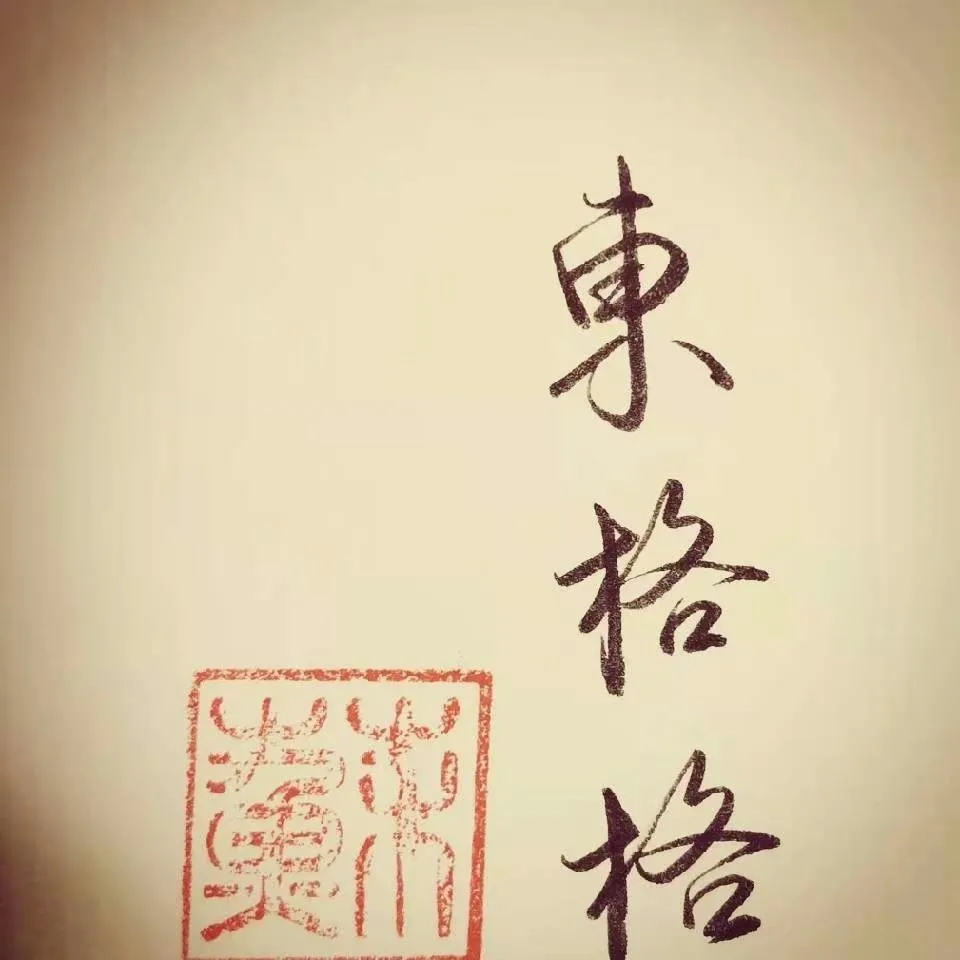 東格格